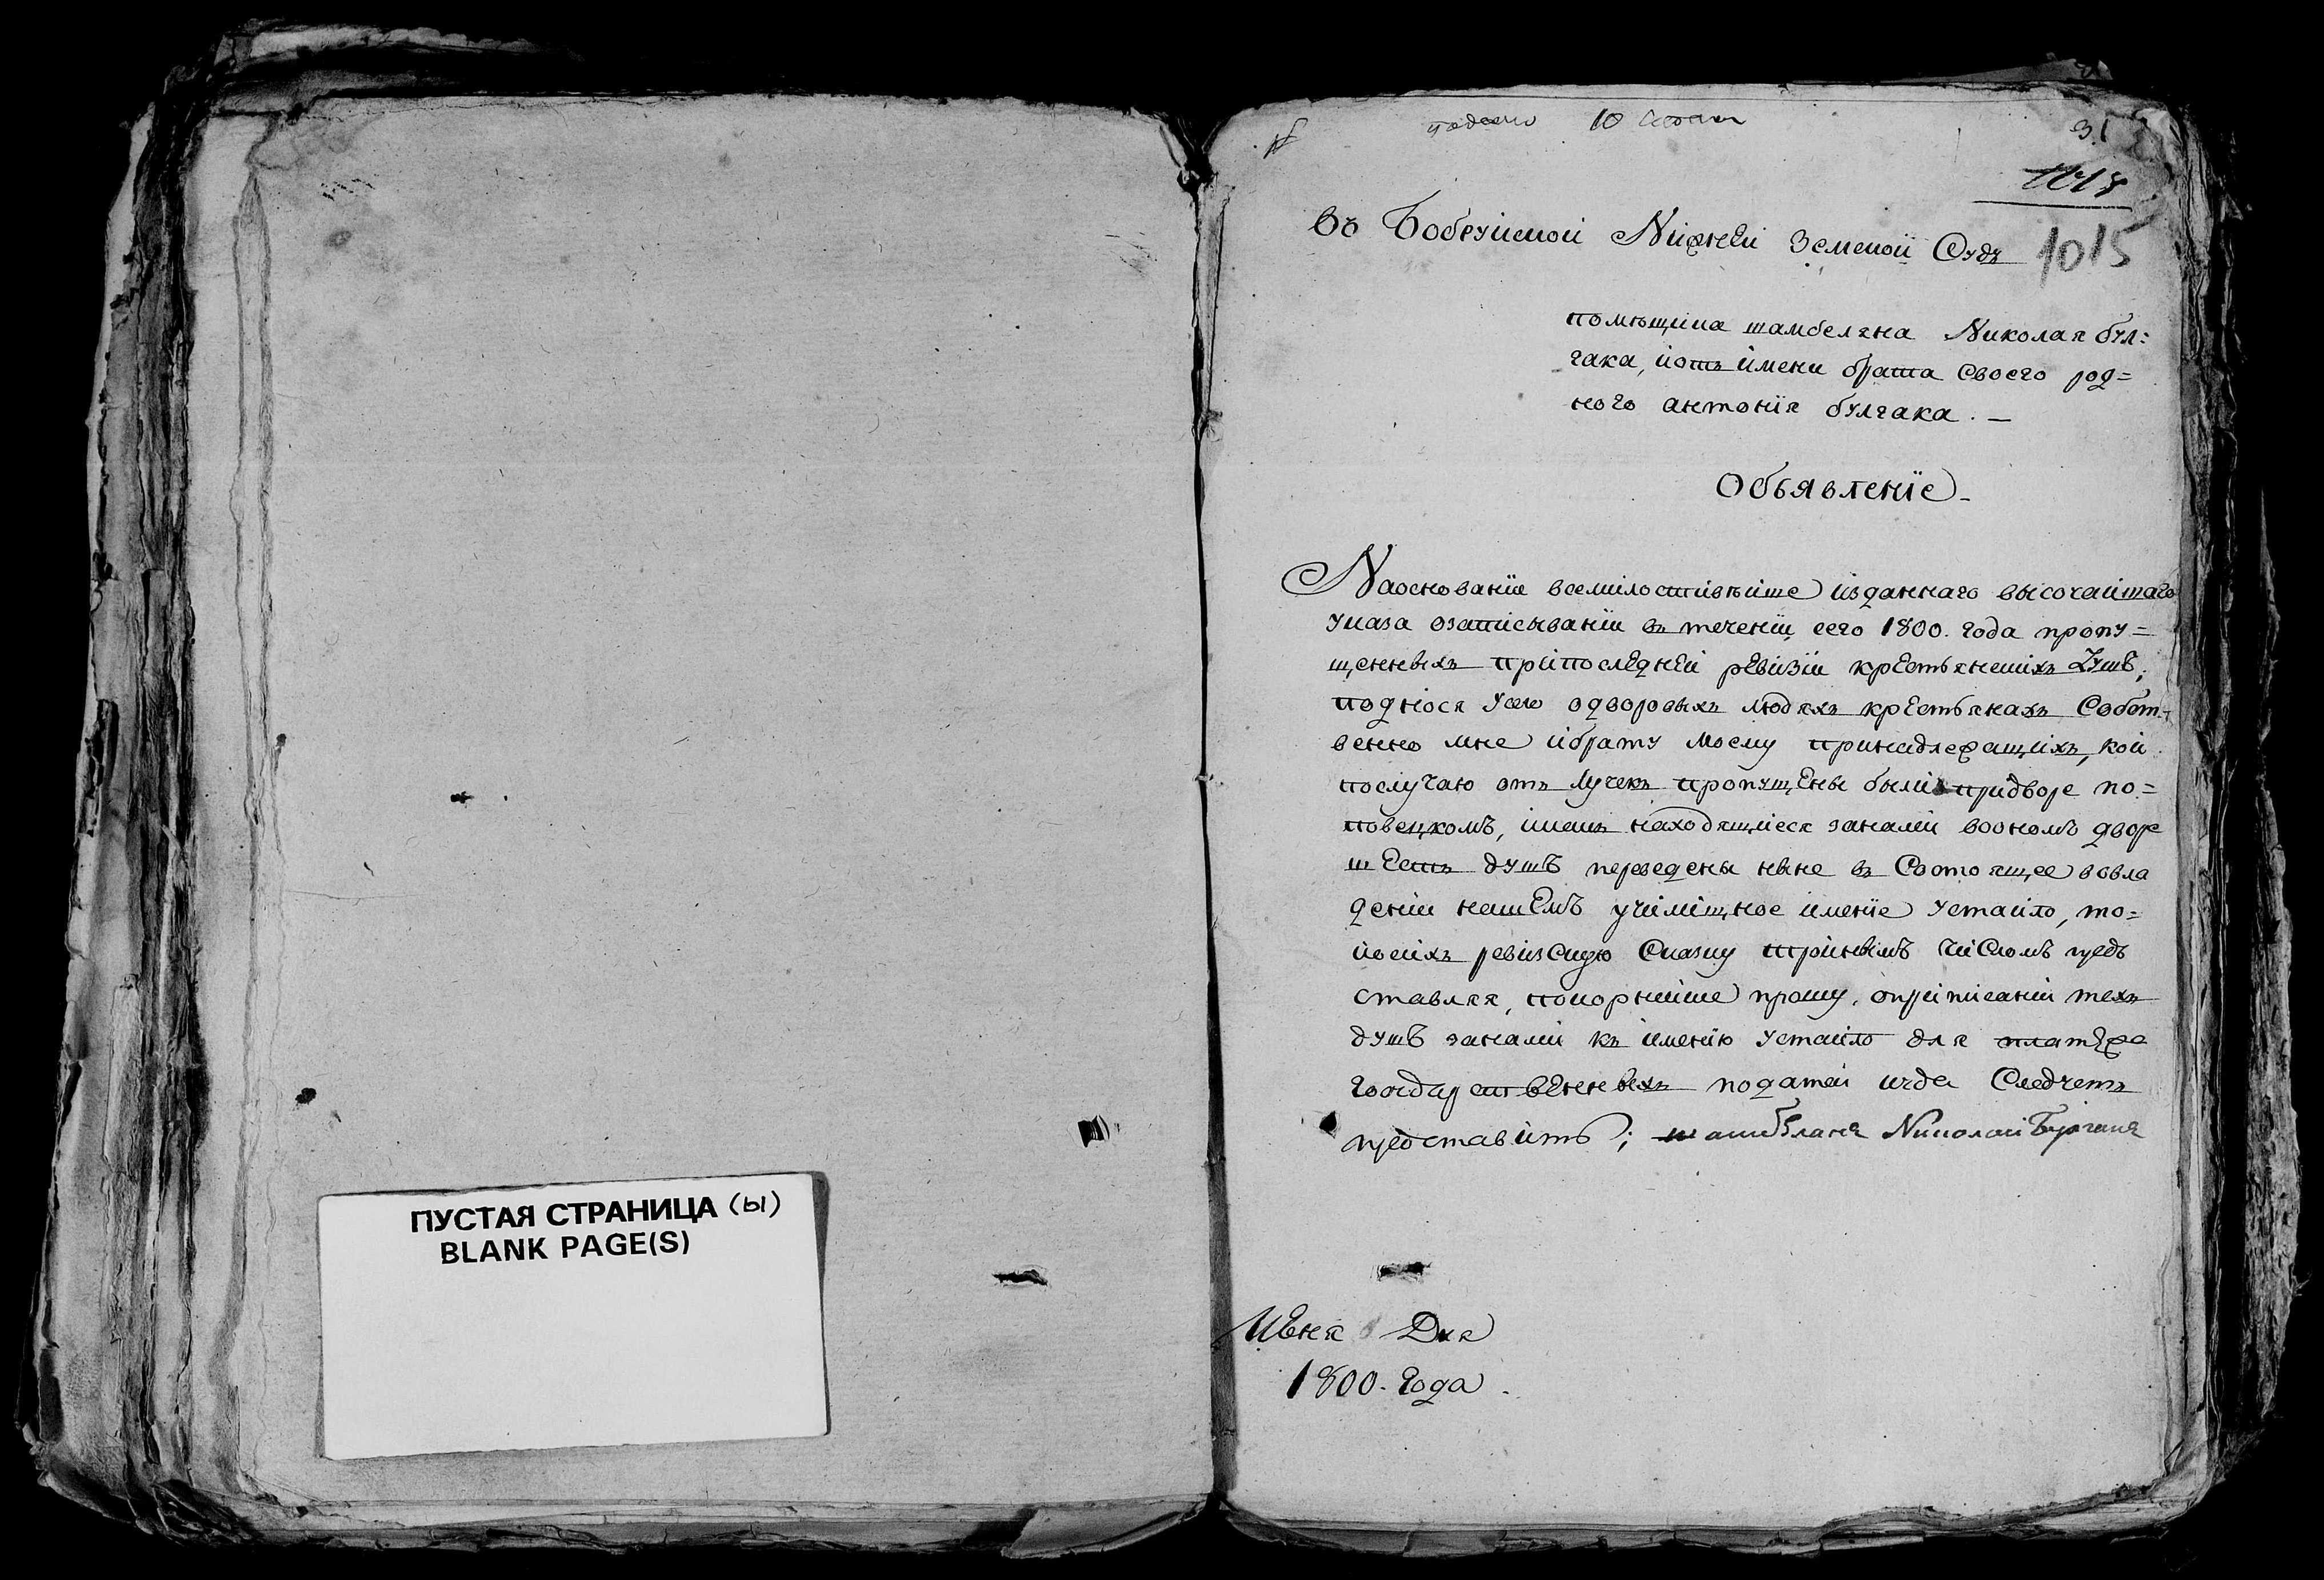 ПУСТАЯ СТРАНИЦА (ы)
BLANK PAGE(S)
подано 10
31
1015
Въ Бобруйской Нижней Земской Судъ
помѣщика шамбеляна Николая бул=
гака, иотъ имени брата Своего род=
ного антонія булгака. —
Объявленїе
Наоснованїи всемилостивѣйше изданнаго высочайшаго
указа озаписыванїи въ теченїи сего 1800. года пропу=
щенныхъ припослѣдней ревизїи крестьянскихъ душъ,
поднося одворовыхъ людяхъ крестьянахъ Собст=
венно мне ибрату моему принадлежащихъ, кои
послучаю отъ пропущены были придворе по=
находящїеся занами воономъ дворе
шесть душъ переведены ныне въ Состоящее вовла
денїи нашемъ имение
оныхъ ревизскую Сказку тройнымъ Числомъ пред
ставляя, покорнейше прошу, оприписанїи техъ
душъ занами къ именїю для платежа
государственныхъ податей куда Следуетъ
представить; шамбелянъ Николай Булгакъ
Июня Дня
1800. Года.